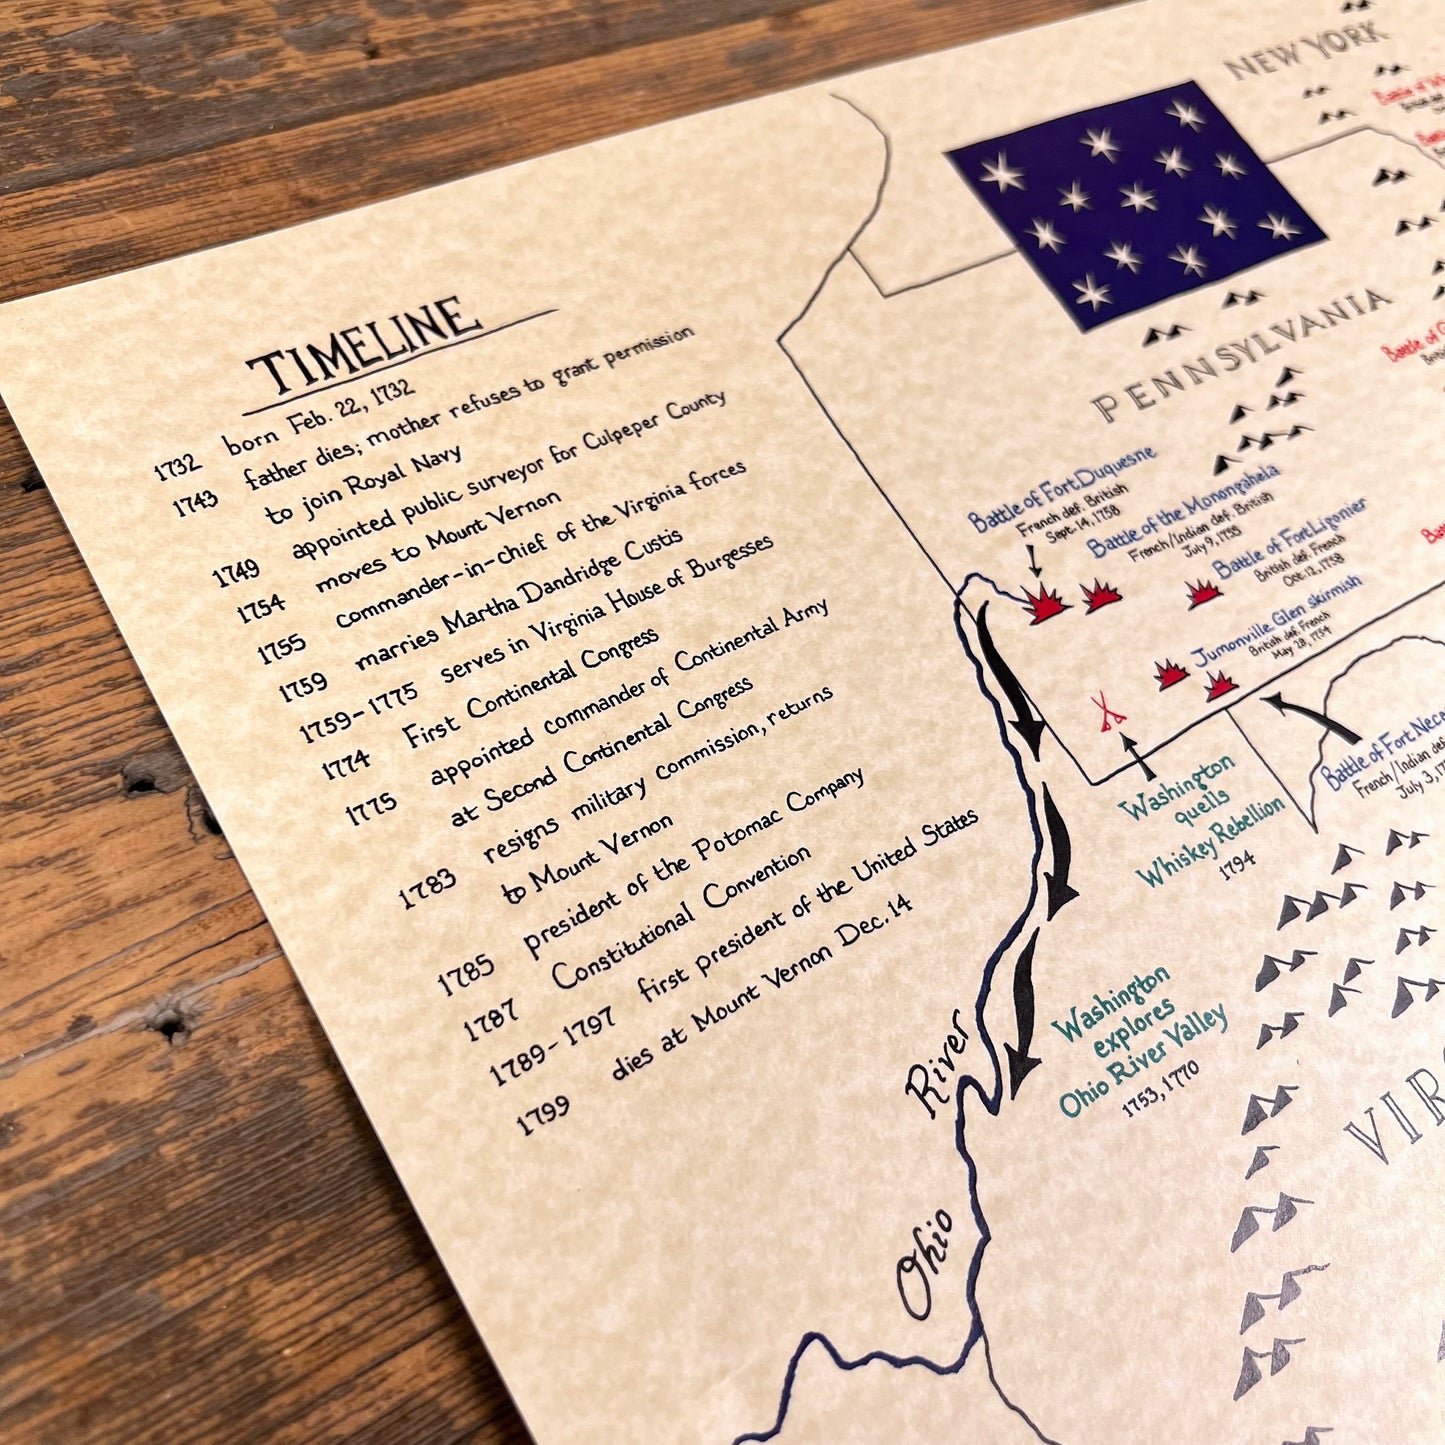 TIMELINE
1732 born Feb. 22, 1732
1743 father dies; mother refuses to grant permission
to join Royal Navy
1749 appointed public surveyor for Culpeper County
1754 moves to Mount Vernon
1755 commander-in-chief of the Virginia forces
1759 marries Martha Dandridge Custis
1759-1775 serves in Virginia House of Burgesses
1774 First Continental Congress
1775 appointed commander of Continental Army
at Second Continental Congress
1783 resigns military commission, returns
to Mount Vernon
1785 president of the Potomac Company
1787 Constitutional Convention
1789-1797 first president of the United States
1799 dies at Mount Vernon Dec. 14
NEW YORK
PENNSYLVANIA
Battle of
Battle of Fort Duquesne
French def. British
Sept. 14, 1758
Battle of the Monongahela
French/Indian def. British
July 9, 1755
Battle of Fort Ligonier
British def. French
Oct. 12, 1758
Jumonville Glen skirmish
British def. French
May 28, 1754
Battle of Fort
French/Indian def.
July 3,
Washington
quells
Whiskey Rebellion
1794
Washington
explores
Ohio River Valley
1753, 1770
Ohio River